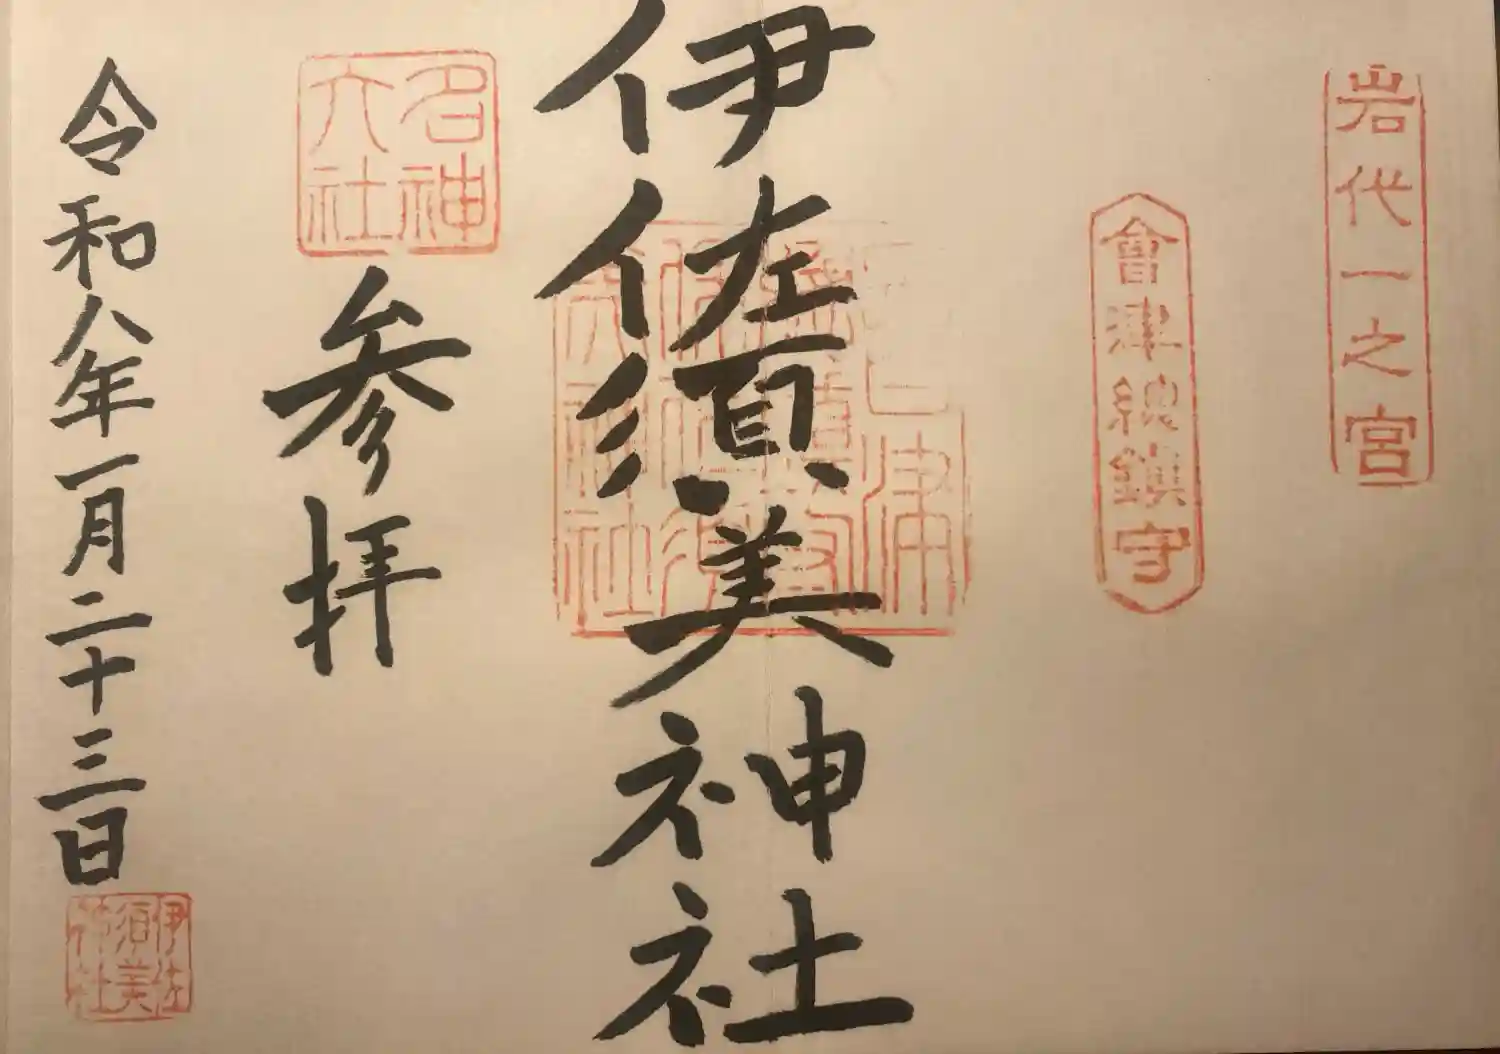 岩代一之宮
會津総鎮守
伊佐須美神社
名神
大社
参拝
令和八年一月二十三日
伊佐
須美
神社